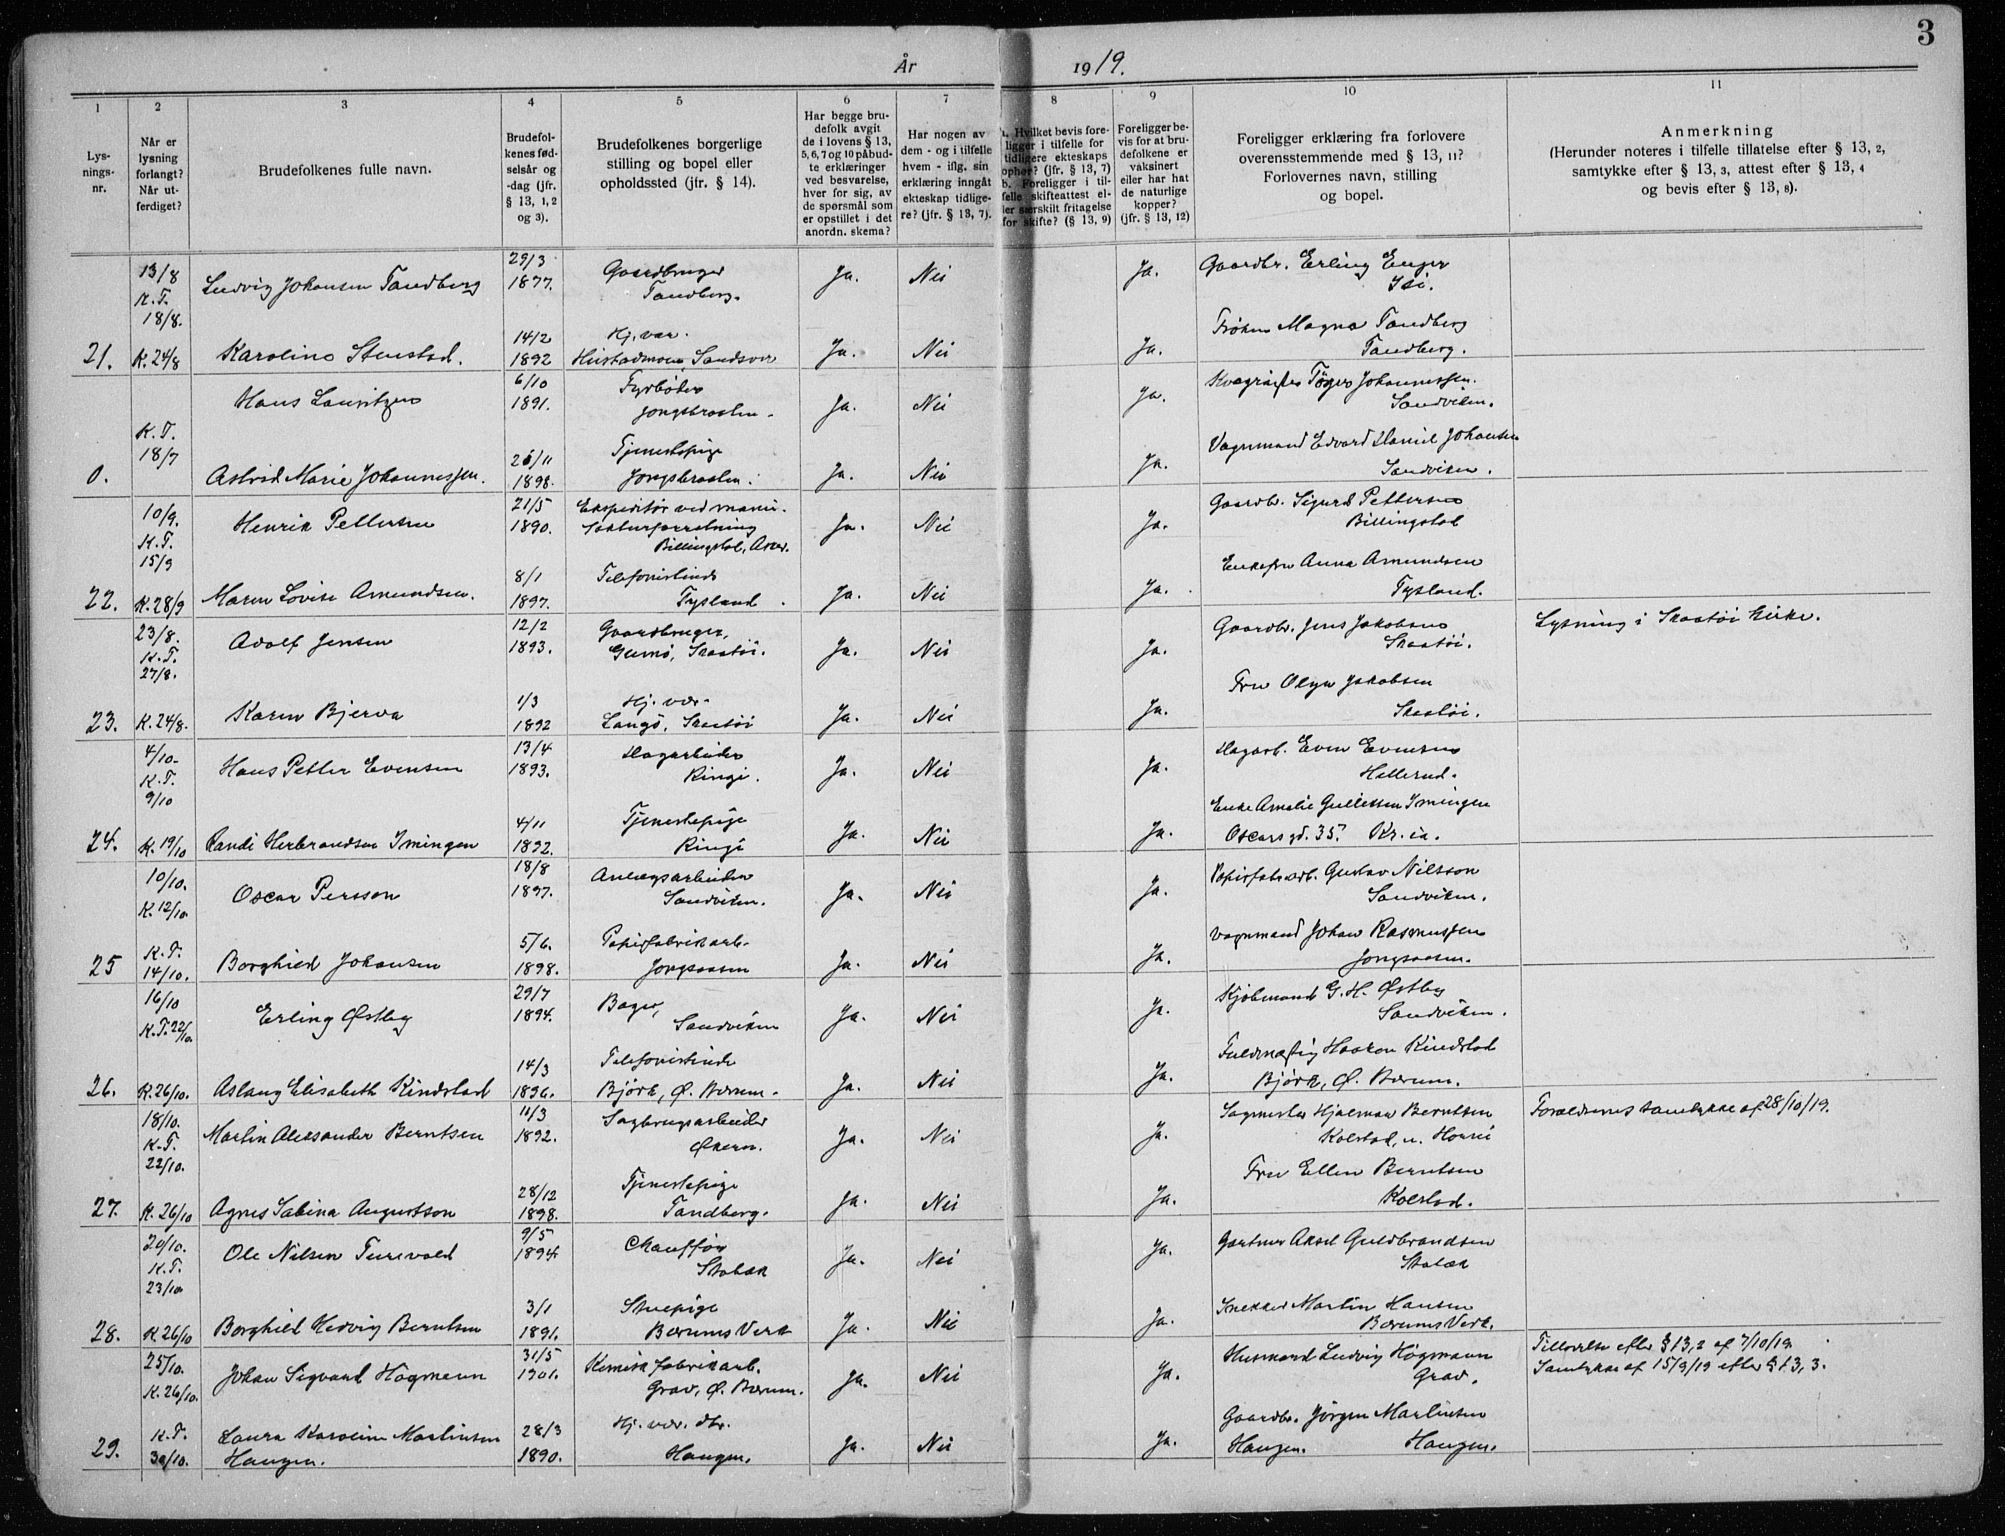 3
År 1919.
1 2 3 4 5 6 7 8 9 10 11
Lys-
nings-
nr.
Når er
lysning
forlangt?
Når ut-
ferdiget?
Brudefolkenes fulle navn.
Brudefol-
kenes fød-
selsår og
-dag (jfr.
§ 13, 1, 2
og 3).
Brudefolkenes borgerlige
stilling og bopel eller
opholdssted (jfr. § 14).
Har begge bru-
defolk avgit
de i lovens § 13,
5, 6, 7 og 10 påbud-
te erklæringer
ved besvarelse,
hver for sig, av
de spørsmål som
er opstillet i det
anordn. skema?
Har nogen av
dem - og i tilfelle
hvem - iflg. sin
erklæring inngått
ekteskap tidlige-
re? (jfr. § 13, 7).
Hvilket bevis fore-
ligger i tilfelle for
tidligere ekteskaps
ophør? (jfr. § 13, 7)
b. Foreligger i til-
felle skifteattest el-
ler særskilt fritagelse
for skifte? (§ 13, 9)
Foreligger be-
vis for at bru-
defolkene er
vaksinert
eller har hat
de naturlige
kopper?
(jfr. § 13, 12)
Foreligger erklæring fra forlovere
overensstemmende med § 13, 11?
Forlovernes navn, stilling
og bopel.
Anmerkning
(Herunder noteres i tilfelle tillatelse efter § 13, 2,
samtykke efter § 13, 3, attest efter § 13, 4
og bevis efter § 13, 8).
13/8 K.T. 18/8. Ludvig Johansen Tandberg 29/3 1877. Gaardbruger Tandberg. Ja. Nei Ja. Gaardbr. Erling Enger Isi.
21. K. 24/8 Karoline Stenstad. 14/2 1892 Hj. vær. Sandsvær Ja. Nei Ja. Frøken Magna Tandberg Tandberg.
Hans Lauritzen 6/10 1891. Fyrbøter Jongsbraaten. Ja. Nei Ja. Johannessen. Sandviken.
0. K.T. 18/7 Astrid Marie Johannessen. 26/11 1898. Tjenestepige Jongsbraaten. Ja. Nei Ja. Vognmand Edvard Daniel Johansen Sandviken.
10/9. K.T. 15/9 Henrik Pettersen 21/5 1890. Ekspeditør ved manu- fakturforretning Billingstad, Asker. Ja. Nei Ja. Gaardbr. Sigurd Pettersen Billingstad
22. K. 28/9 Maren Lovise Amundsen. 8/1 1897. Telefonistinde Tysland. Ja. Nei Ja. Enkefru Anna Amundsen Tysland.
23/8. K.T. 27/8. Adolf Jensen 12/2 1893. Gaardbruger, Gumø, Skaatøi. Ja. Nei Ja. Gaardbr. Jens Jakobsen Skaatøi. Lysning i Skaatøi kirke.
23. K. 24/8. Karen Bjerva 1/3 1892 Hj. vær. Langø, Skaatøi Ja. Nei Ja. Fru Olga Jakobsen Skaatøi.
4/10. K.T. 9/10 Hans Petter Evensen 13/4 1893. Hagarbeider Ringi. Ja. Nei Ja. Hagarb. Even Evensen Hellerud.
24. K. 19/10 Randi Herbrandsen Imingen 4/11 1892. Tjenestepige Ringi Ja. Nei Ja. Enke Amalie Gullessen Imingen Oscarsgd. 35. Kr.ia.
10/10. K. 12/10. Oscar Persson 18/8 1897. Anlægsarbeider Sandviken. Ja. Nei Ja. Papirfabr.arb. Gustav Nilsson Sandviken.
25 K.T. 14/10. Borghild Johansen 5/6. 1898. Papirfabrikarb. Jongsaasen Ja. Nei Ja. Vognmand Johan Rasmussen Jongsaasen.
16/10 K.T. 22/10. Erling Østby 29/7 1894. Bager, Sandviken Ja. Nei Ja. Kjøbmand G. H. Østby Sandviken.
26. K. 26/10. Aslaug Elisabeth Kindstad 14/3 1896. Telefonistinde Bjørk, Ø. Bærum. Ja. Nei Ja. Fuldmægtig Haakon Kindstad Bjørk, Ø. Bærum.
18/10. K.T. 22/10. Martin Aleksander Berntsen 11/3 1892. Sagbrugsarbeider Økern. Ja. Nei Ja. Sagmester Hjalmar Berntsen Kolstad, Forældrenes samtykke af 28/10/19.
27. K. 26/10 Agnes Sabina Augustsson 28/12 1898. Tjenestepige Tandberg. Ja. Nei Ja. Fru Ellen Berntsen Kolstad.
20/10. K.T. 23/10 Ole Nilsen Turevold 9/5 1894. Chauffør Stabæk Ja. Nei Ja. Gartner Aksel Guldbrandsen Stabæk
28. K. 26/10 Borghild Hedvig Berntsen 3/1 1891. Stuepige Bærums Verk Ja. Nei Ja. Snekker Martin Hansen Bærums Verk.
25/10. K. 26/10. Johan Sigvard Høgmann 31/5 1901. Kemisk fabrikarb. Grav, Ø. Bærum. Ja. Nei Ja. Husmand Ludvig Høgmann Grav. Tilladelse efter § 13, 2 af 7/10/19. Samtykke af 15/9/19 efter § 13, 3.
29. K.T. 30/10. Laura Karoline Martinsen Haugen. 28/3 1890. Hj. vær. dtr. Haugen. Ja. Nei Ja. Gaardbr. Jørgen Martinsen Haugen. Haugen.